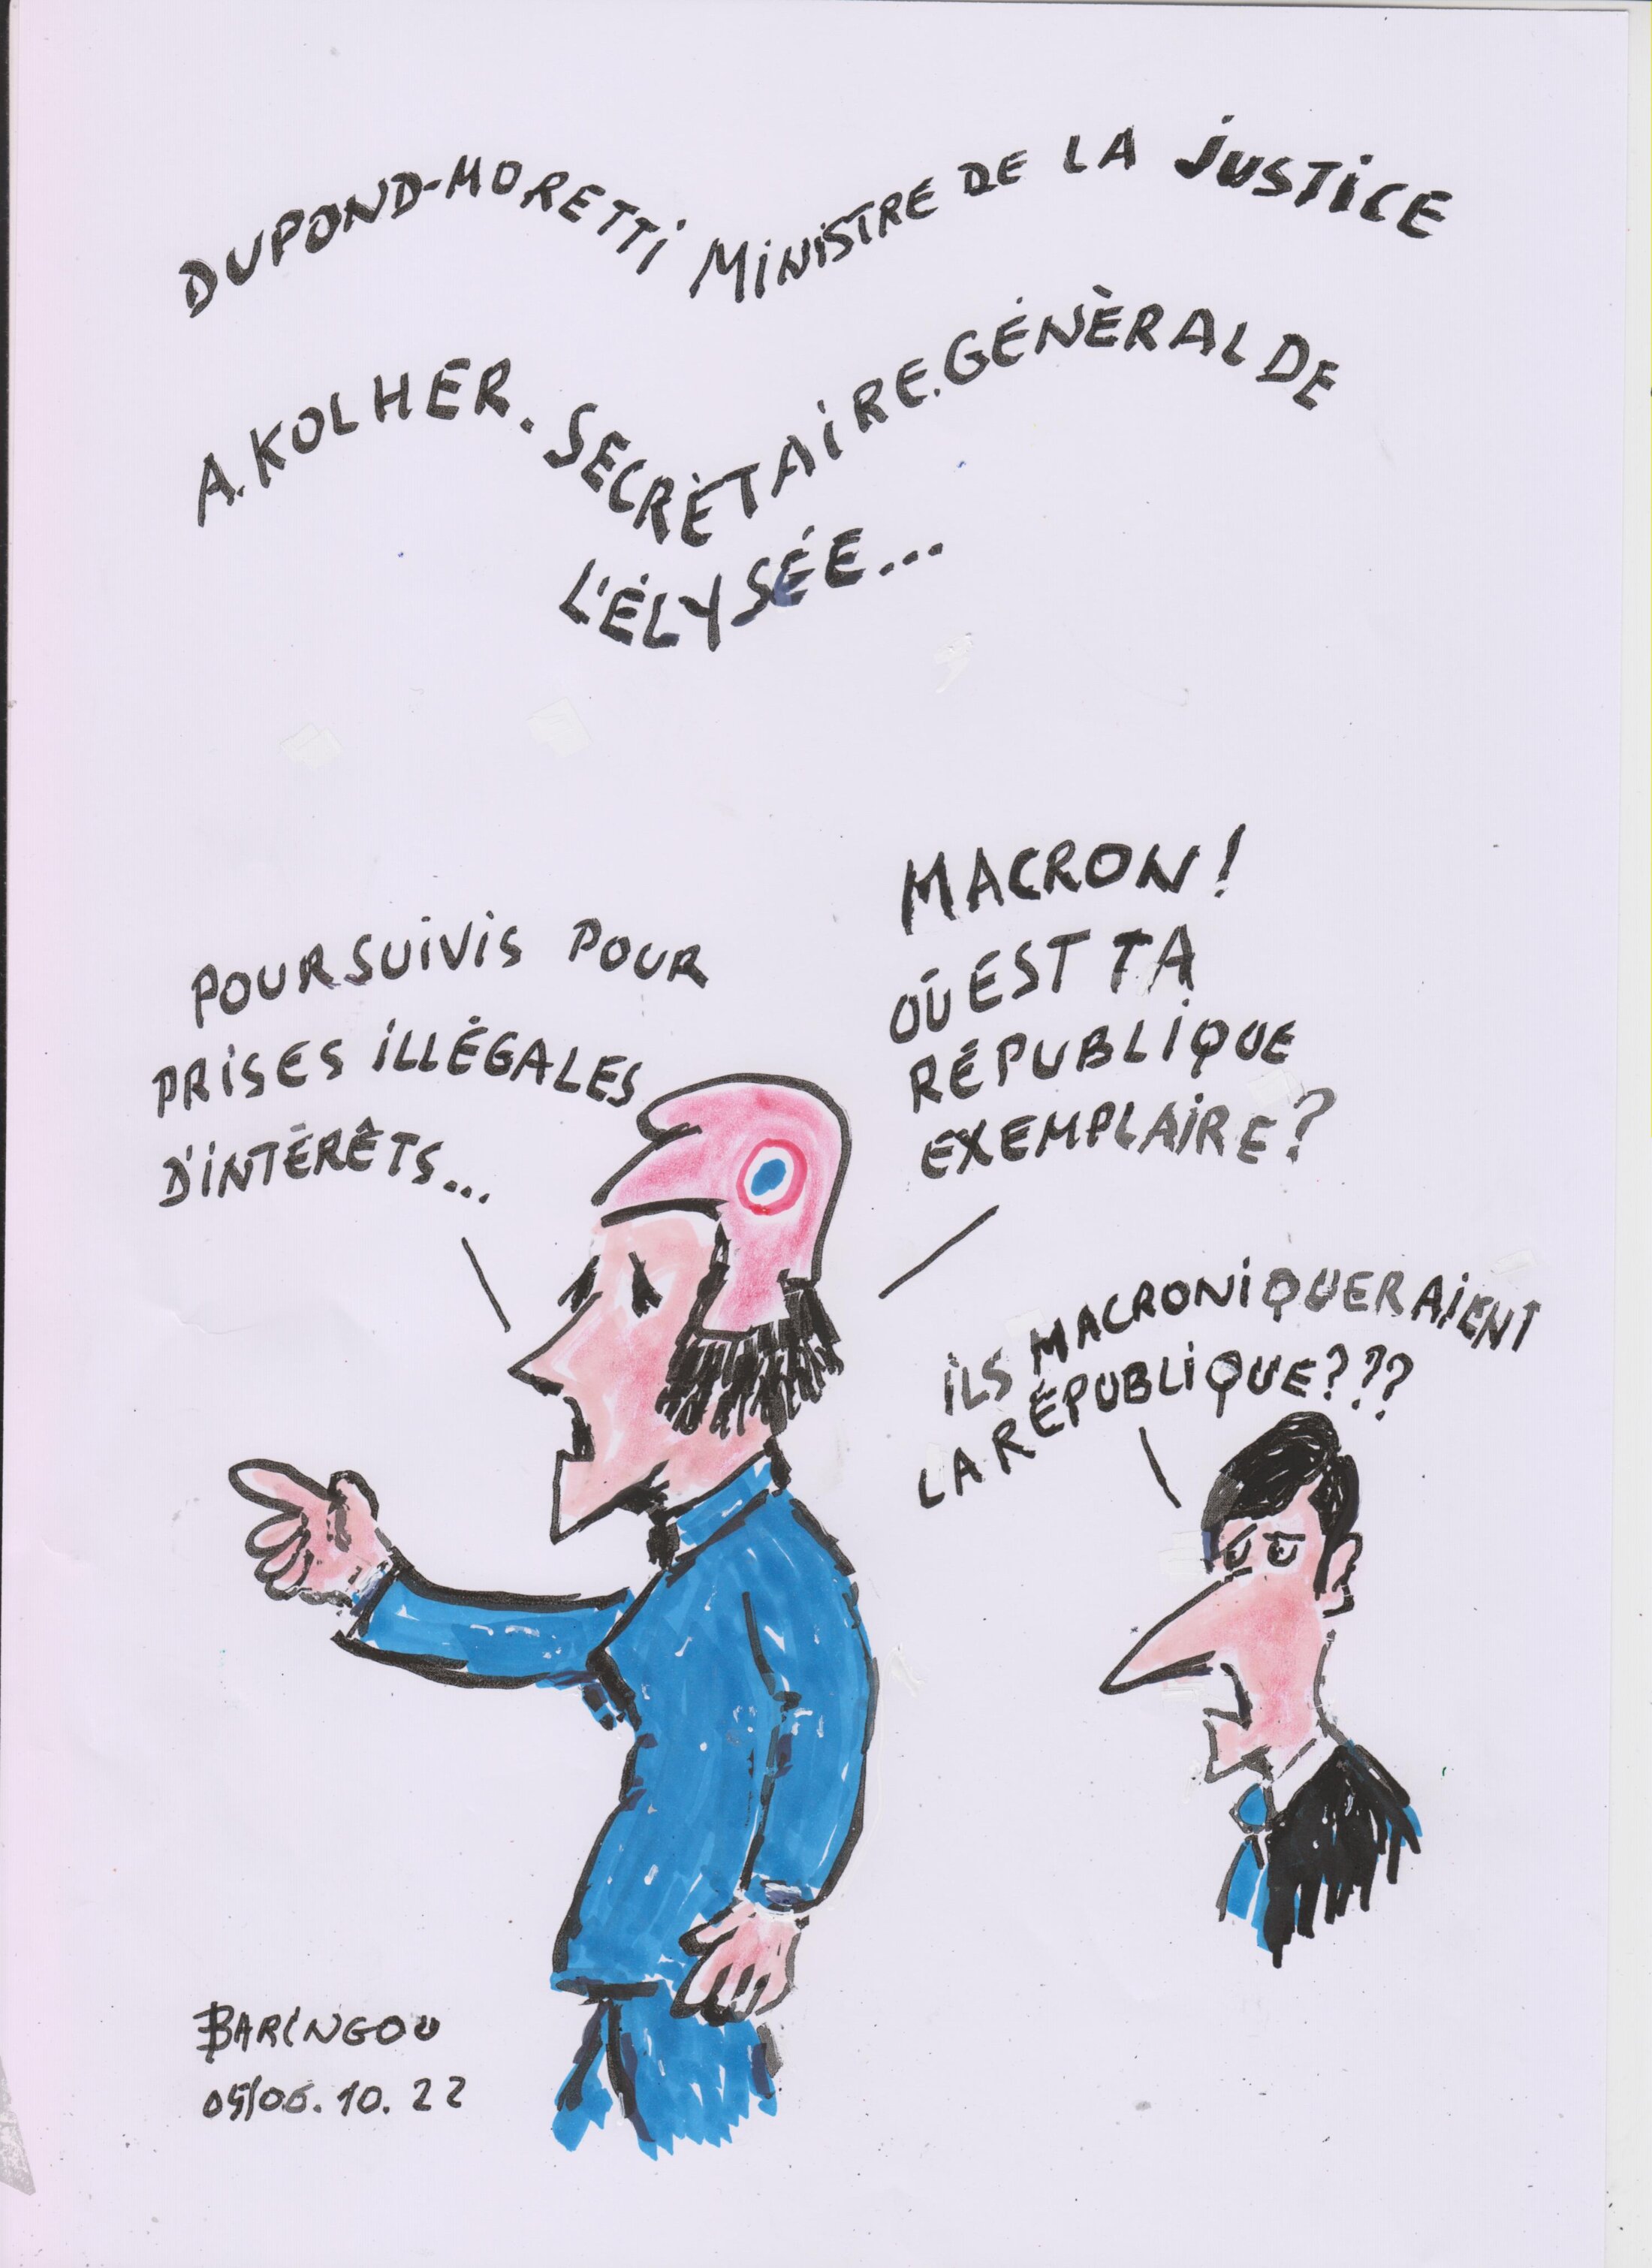 DUPOND-MORETTI MINISTRE DE LA JUSTICE
A. KOLHER. SECRÉTAIRE. GÉNÈRAL DE
L'ÉLYSÉE...
POURSUIVIS POUR
PRISES ILLÉGALES
D'INTÉRÊTS...
MACRON!
OÙ EST TA
RÉPUBLIQUE
EXEMPLAIRE?
ILS MACRONIQUERAIENT
LA RÉPUBLIQUE???
BARINGOU
05/06.10.22